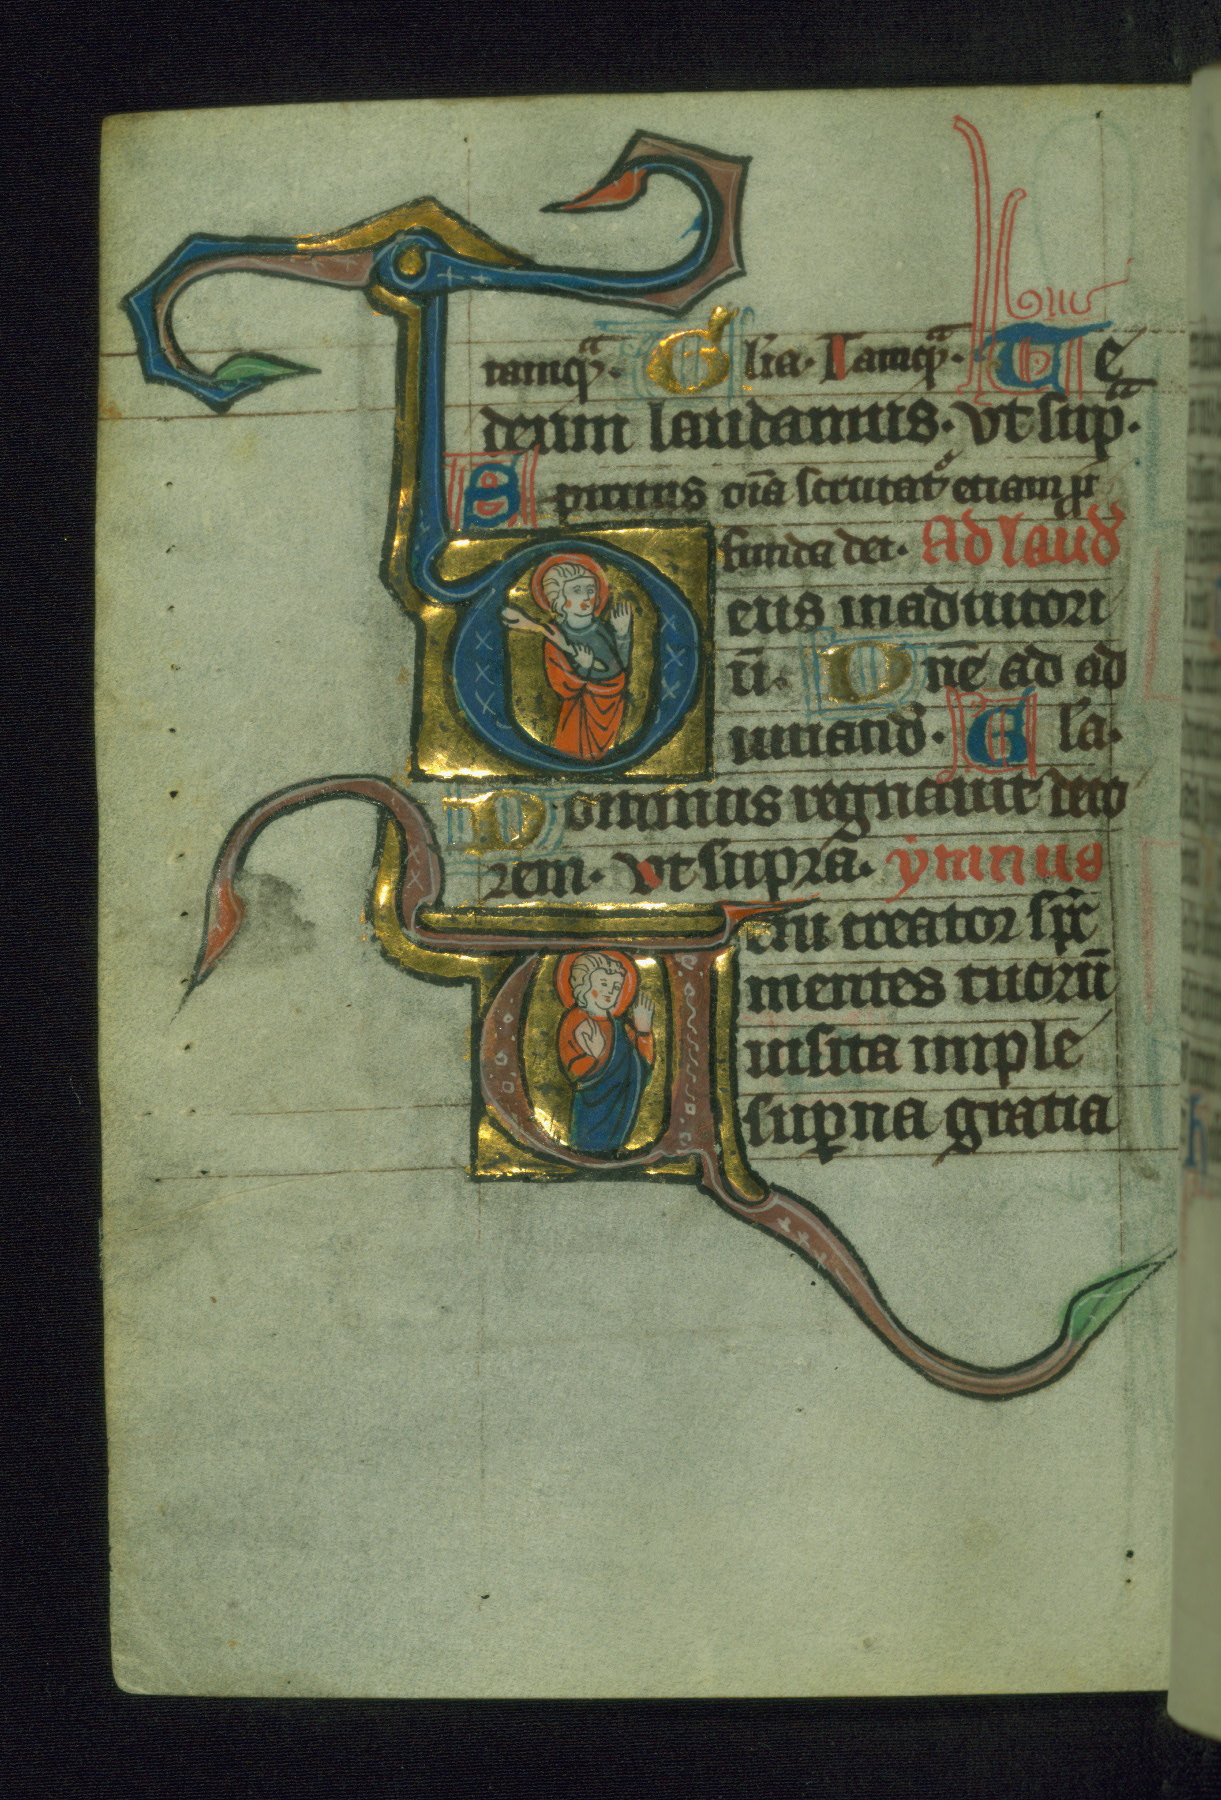 tamqᷓ. Glīa. Tamqᷓ. Te
deum laudamus. vt sup̄.
Spiritus oīa scrutatᷓ etiam ꝓ
funda dei. Ad laud̄
Deus in adiutori
ū. Dnē ad ad
iuuand̄. Gla.
Dominus regnauit deco
rem. vt supra. ymnus
Ueni creator spc̄
mentes tuorū
uisita imple
suꝑna gratia